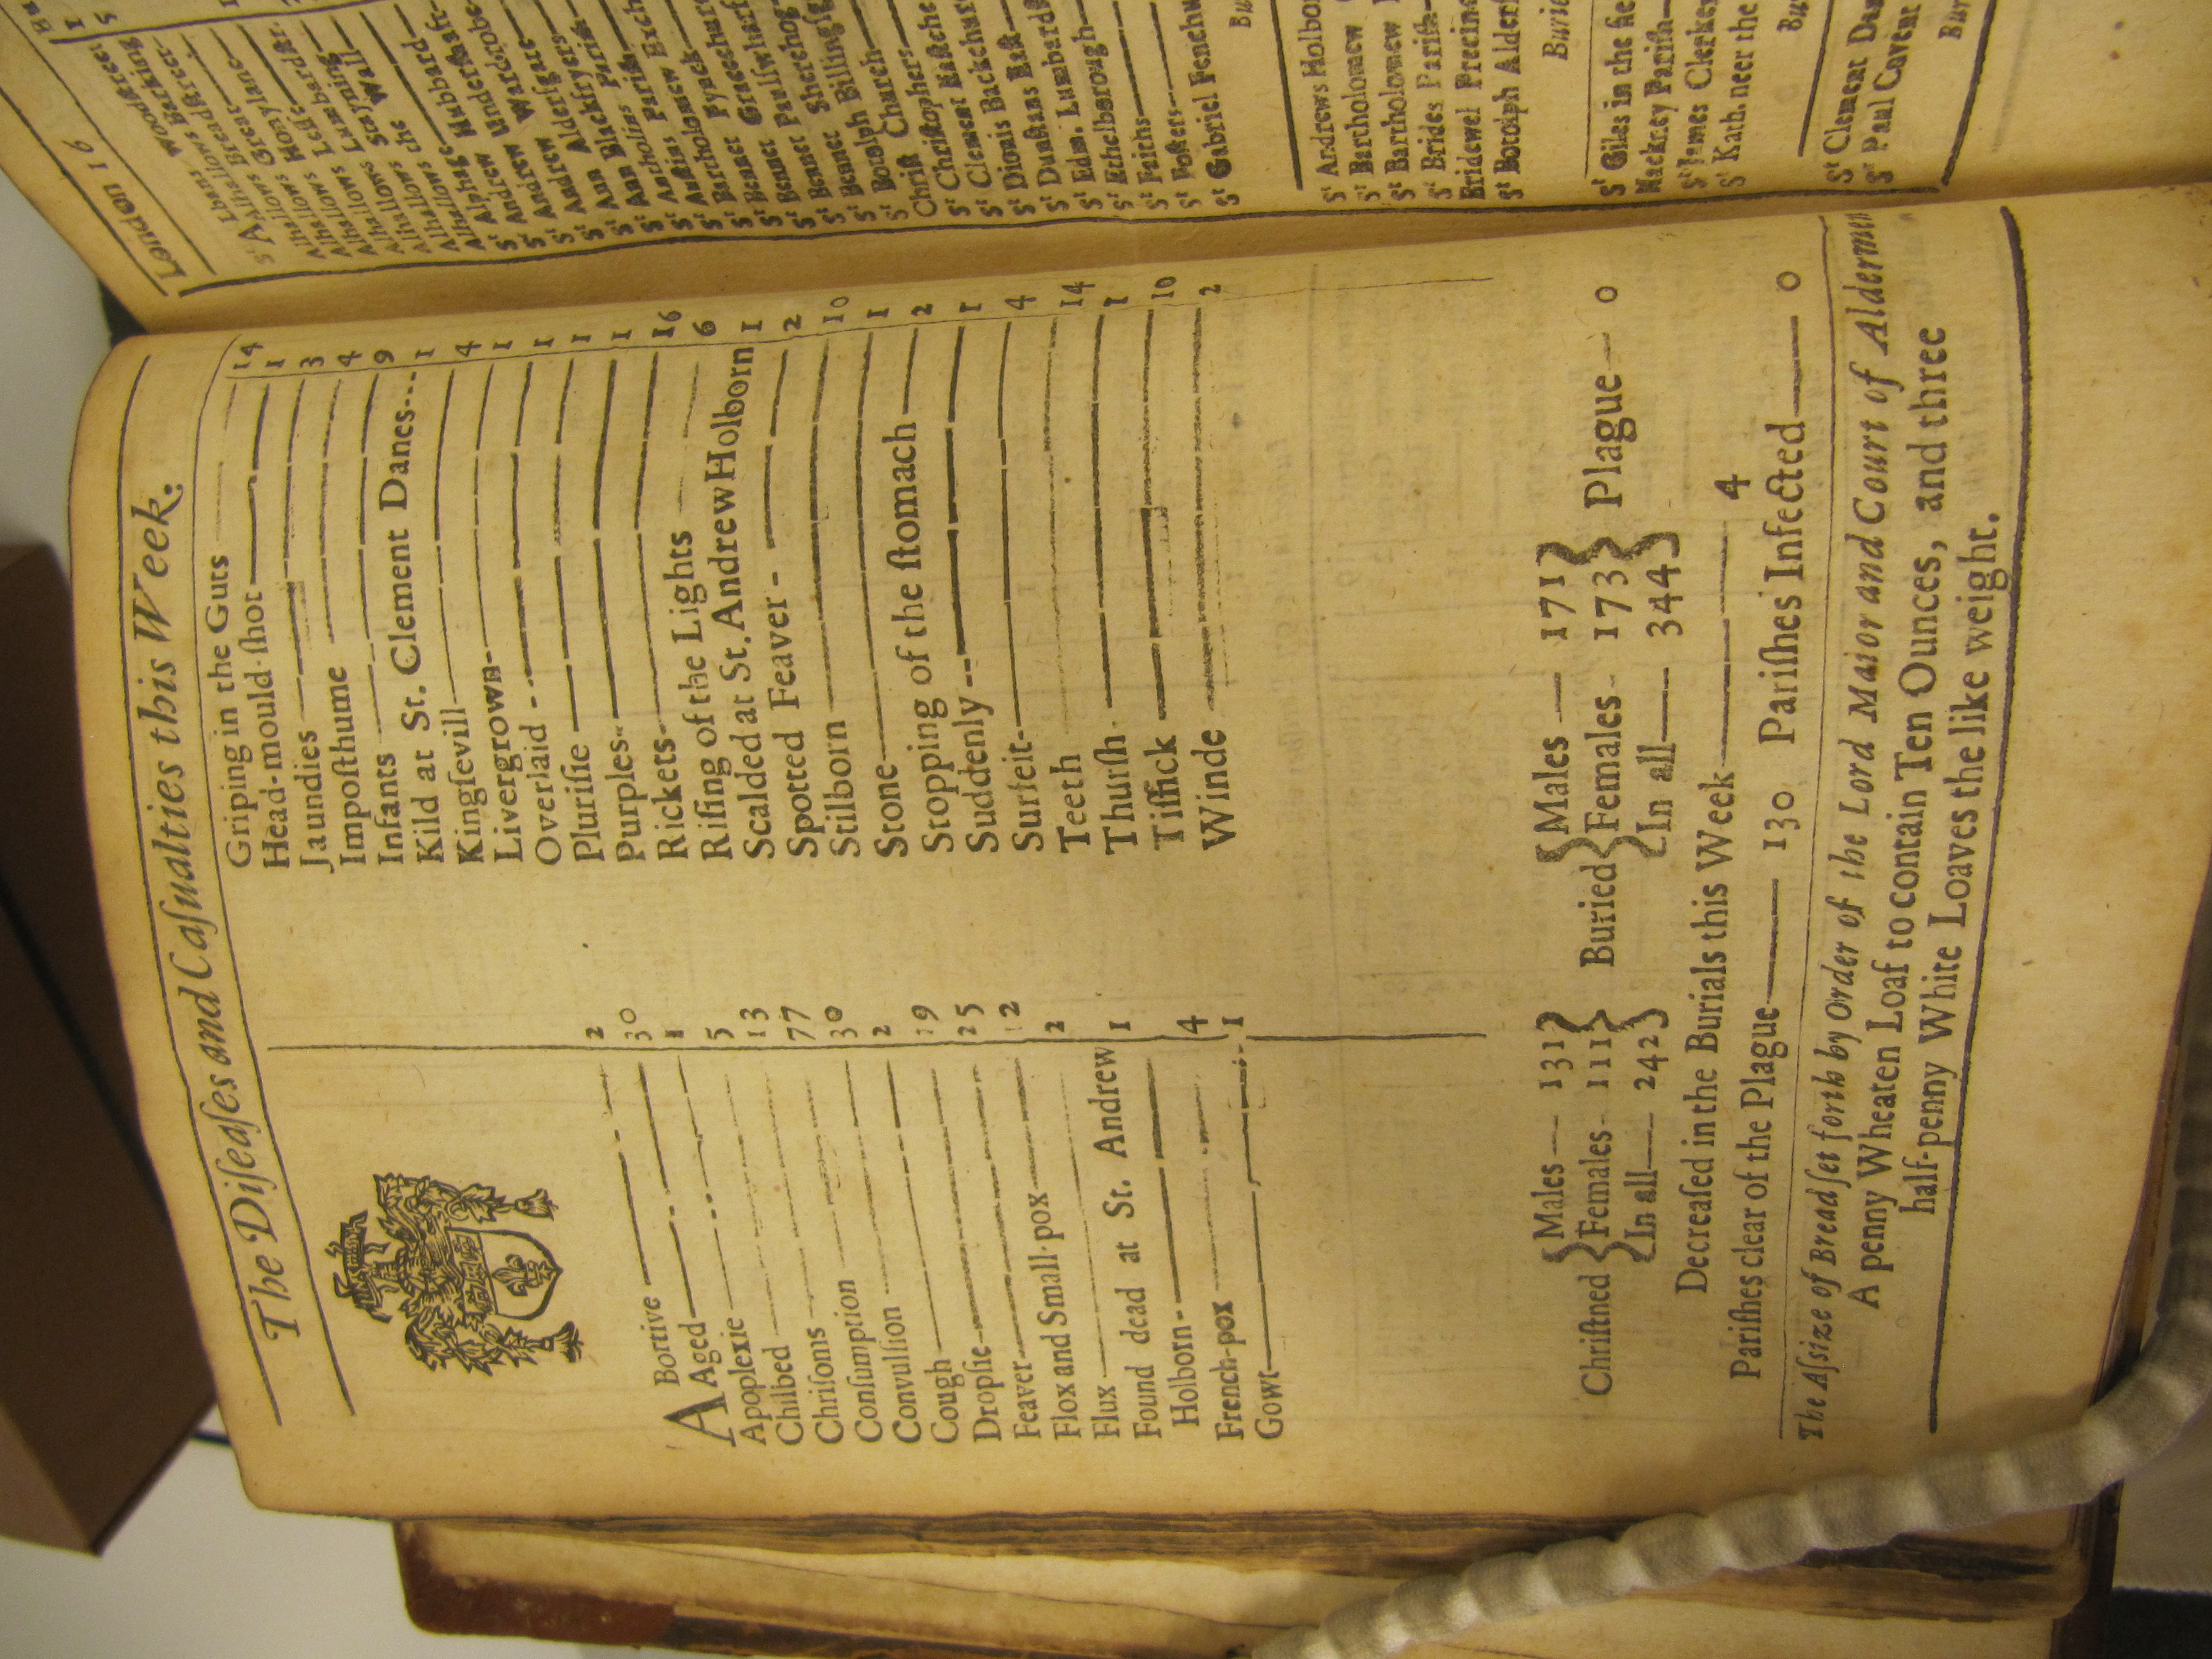 The Diſeaſes and Caſualties this Week.
ABortive — 2
Aged — 30
Apoplexie — 1
Chilbed — 5
Chriſoms — 13
Conſumption — 77
Convulſion — 30
Cough — 2
Dropſie — 19
Feaver — 25
Flox and Small-pox — 12
Flux — 2
Found dead at St. Andrew
Holborn — 1
French-pox — 4
Gowt — 1
Griping in the Guts — 14
Head-mould-ſhot — 1
Jaundies — 3
Impoſthume — 4
Infants — 9
Kild at St. Clement Danes — 1
Kingſevill — 4
Livergrown — 1
Overlaid — 1
Pluriſie — 1
Purples — 1
Rickets — 16
Riſing of the Lights — 6
Scalded at St. Andrew Holborn 1
Spotted Feaver — 2
Stilborn — 10
Stone — 1
Stopping of the ſtomach — 2
Suddenly — 1
Surfeit — 4
Teeth — 14
Thurſh — 1
Tiſſick — 10
Winde — 2
Chriſtned { Males — 131 Females — 111 In all — 242 }
Buried { Males — 171 Females — 173 In all — 344 } Plague — 0
Decreaſed in the Burials this Week — 4
Pariſhes clear of the Plague — 130 Pariſhes Infected — 0
The Aſsize of Bread ſet forth by Order of the Lord Maior and Court of Aldermen
A penny Wheaten Loaf to contain Ten Ounces, and three
half-penny White Loaves the like weight.
London 16
St Albans Woodſtreet
Alhallows Barking
Alhallows Breadſtreet
Alhallows Great
Alhallows Honylane
Alhallows Leſſe
Alhallows Lumbardſtr.
Alhallows Stayning
Alhallows the Wall
Alphage
St Andrew Hubbard
St Andrew Underſhaft
St Andrew Wardrobe
St Ann Alderſgate
St Ann Blackfryers
St Antholins Pariſh
St Auſtins Pariſh
St Bartholomew Exch
St Bennet Fynck
St Bennet Gracechur
St Bennet Paulſwharf
St Bennet Sherehog
St Botolph Billingſg
Chriſt Church
St Chriſtophers
St Clement Eaſtche
St Dionis Backchur
St Dunſtans Eaſt
St Edm. Lumbardſ
St Ethelborough
St Faiths
St Foſters
St Gabriel Fenchu
Bu
St Andrews Holbo
St Bartholomew
St Bartholomew
St Brides Pariſh
Bridewel Precinc
St Botolph Alderſ
Burie
St Giles in the fie
Hackney Pariſh
St James Clerke
St Kath. neer the
Bu
St Clement Da
St Paul Covent
Bur